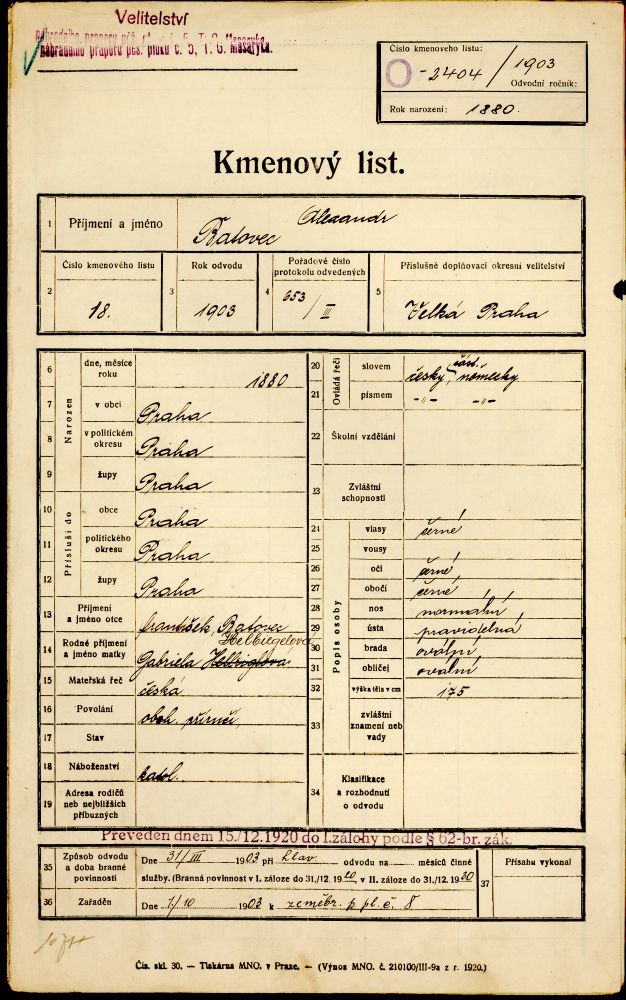 Velitelství
náhradního praporu pěš. pluku č. 5, T. G. Masaryka.
Číslo kmenového listu:
0-2404 / 1903
Odvodní ročník:
Rok narození: 1880.
Kmenový list.
1 Příjmení a jméno Batovec Alexandr
2 Číslo kmenového listu 18.
3 Rok odvodu 1903
4 Pořadové číslo protokolu odvedených 653/III
5 Příslušné doplňovací okresní velitelství Velká Praha
6 Narozen dne, měsíce roku 1880
7 v obci Praha
8 v politickém okresu Praha
9 župy Praha
10 Přísluší do obce Praha
11 politického okresu Praha
12 župy Praha
13 Příjmení a jméno otce František, Batovec
Helbiegelova
14 Rodné příjmení a jméno matky Gabriela
15 Mateřská řeč česká
16 Povolání obch. příručí
17 Stav
18 Náboženství katol.
19 Adresa rodičů neb nejbližších příbuzných
20 Ovládá řeči slovem česky, část. německy
21 písmem -"- -"-
22 Školní vzdělání
23 Zvláštní schopnosti
24 Popis osoby vlasy černé
25 vousy
26 oči černé
27 obočí černé
28 nos normální
29 ústa pravidelná
30 brada ovální
31 obličej ovální
32 výška těla v cm 175
33 zvláštní znamení neb vady
34 Klasifikace a rozhodnutí o odvodu
Převeden dnem 15./12.1920 do I.zálohy podle § 62-br. zák.
35 Způsob odvodu a doba branné povinnosti Dne 31/III 1903 při hlav. odvodu na měsíců činné
služby. (Branná povinnost v I. záloze do 31./12. 1920, v II. záloze do 31./12. 1930
36 Zařaděn Dne 1/10 1903 k zeměbr. p. pl. č. 8
37 Přísahu vykonal
Čís. skl. 30. — Tiskárna MNO. v Praze. — (Výnos MNO. č. 210100/III-9a z r. 1920.)